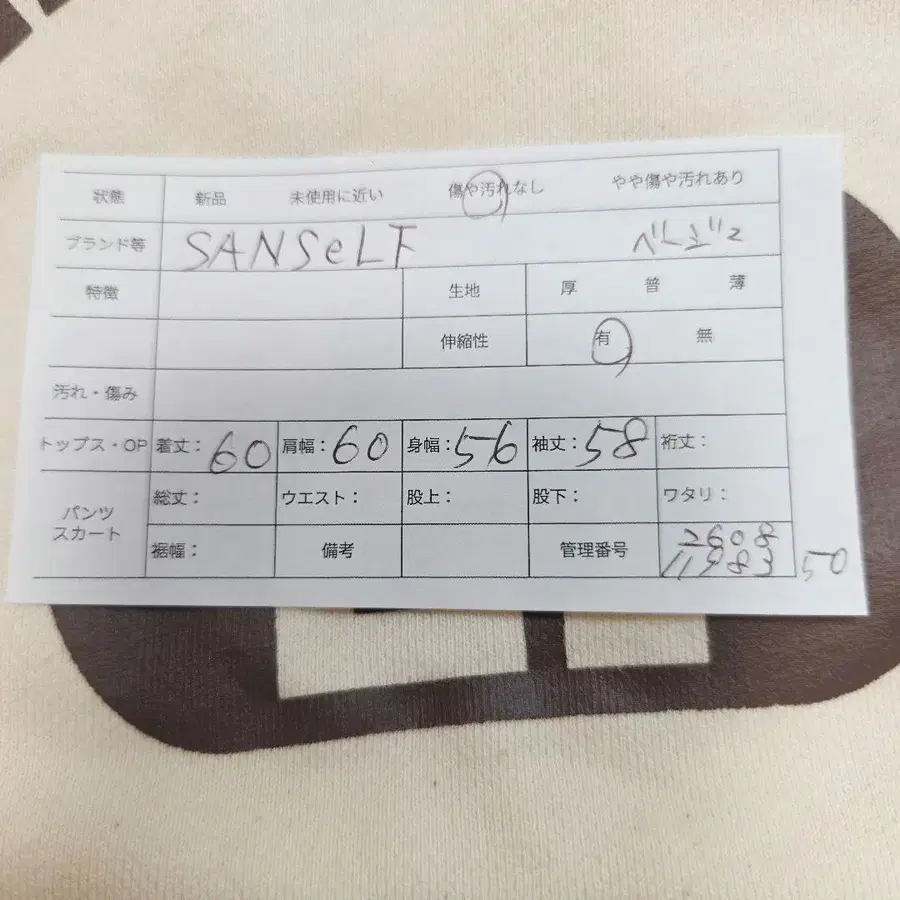 状態 新品 未使用に近い 傷や汚れなし やや傷や汚れあり
ブランド等 SANSeLF
特徴 生地 厚 普 薄
伸縮性 有 無
汚れ・傷み
トップス・OP 着丈： 60 肩幅： 60 身幅： 56 袖丈： 58 裄丈：
パンツ スカート 総丈： ウエスト： 股上： 股下： ワタリ：
裾幅： 備考 管理番号 2608
50